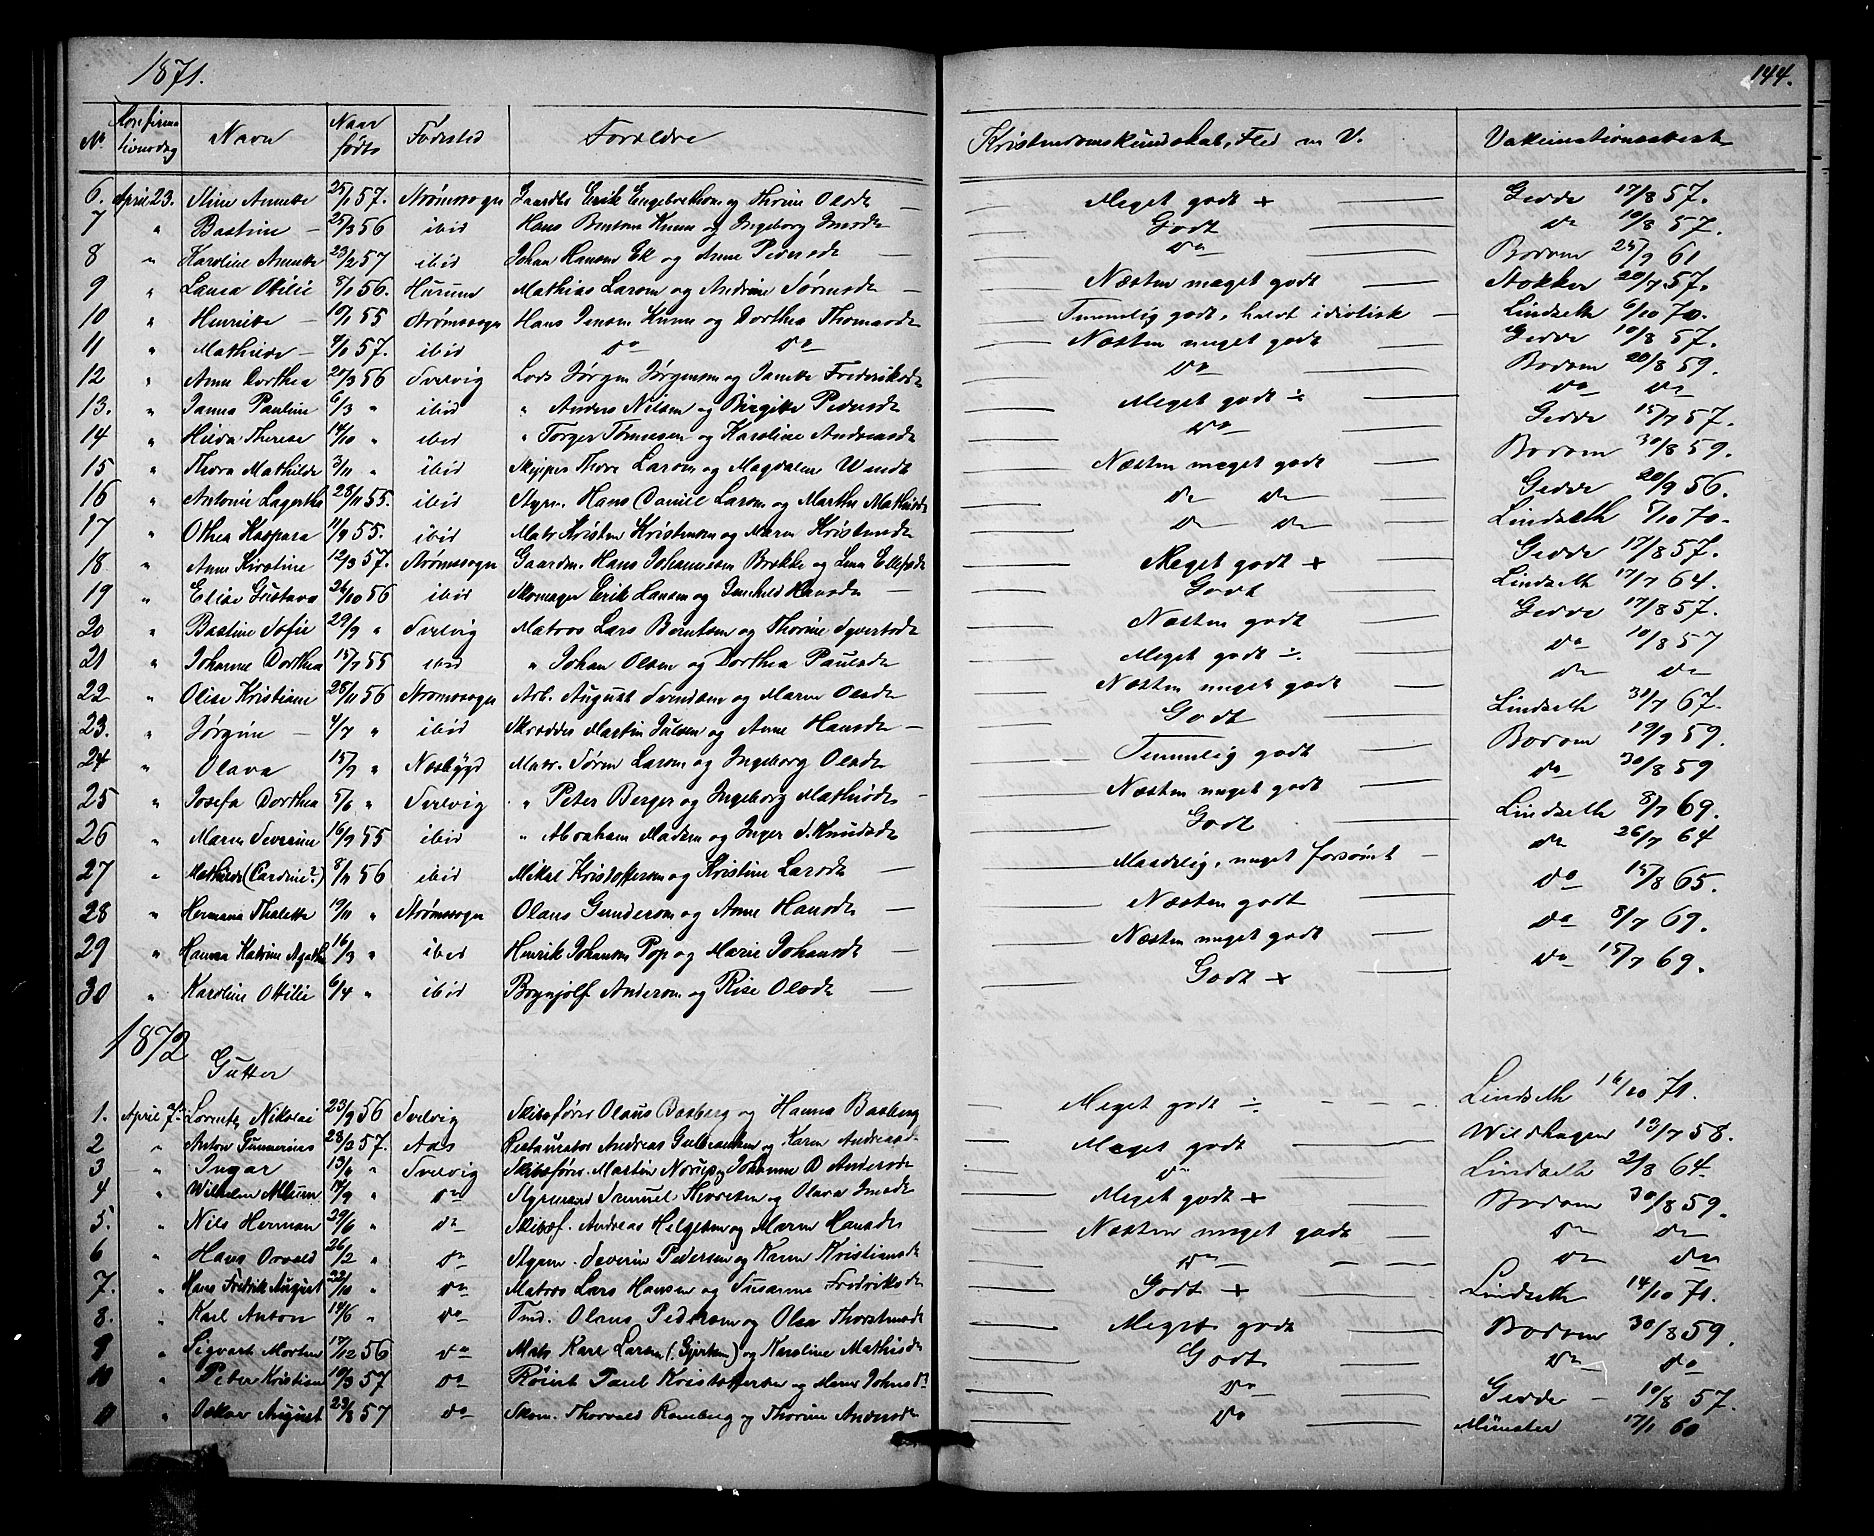 1871.
144.
No Konfirmationsdag Navn Naar født Fødested Forældre Kristendomskundskab, Flid m V. Vakcinationsattest
6. April 23. Stine Annette 25/1 57. Strømssogn Gaardbr Erik Engebrethsen og Thorine Olsdt Meget godt + Gedde 17/8 57.
7 " Bastine 25/3 56 ibid Hans Berntsen Kunne og Ingeborg Jensdt Godt do 10/8 57.
8 " Karoline Annette 23/2 57 ibid Johan Hansen Ek og Anne Pedersdt do Bodom 25/9 61
9 " Laura Otilie 8/1 56. Hurum Mathias Larsen og Andrine Sørensdt Næsten meget godt Stokker 20/7 57.
10 " Henrikke 10/1 55 Strømssogn Hans Jensen Kunne og Dorthea Thomasdt Temmelig godt, halvt idiotisk Lindseth 6/10 70.
11 " Mathilde 9/10 57. ibid do do Næsten meget godt Gedde 10/8 57.
12 " Anne Dorthea 20/3 56 Svelvig Lods Jørgen Jørgensen og Janette Frederiksdt do Bodom 20/8 59.
13. " Janna Pauline 6/3 " ibid " Anders Nilsen og Birgitte Pedersdt Meget godt ÷ do do
14 " Hilda Therese 14/10 " ibid " Torger Tønnesen og Karoline Andreasdt do Gedde 15/7 57.
15 " Thora Mathilde 3/11 " ibid Skipper Thore Larsen og Magdalene Wendt Næsten meget godt Bodom 30/8 59.
16 " Antonie Lagertha 28/11 55. ibid Styrm. Hans Daniel Larsen og Marthe Mathisdt do do Gedde 20/9 56.
17 " Othea Kaspara 11/9 55. ibid Matr Kristen Kristensen og Maren Kristensdt do do Lindseth 5/10 70.
18 " Anne Kirstine 12/3 57. Strømssogn Gaardm. Hans Johannesen Brække og Lena Ellefsdt Meget godt + Gedde 17/8 57.
19 " Elise Gustava 26/10 56 ibid Skomager Erik Hansen og Gunhild Hansdt Godt Lindseth 17/7 64.
20 " Bastine Sofie 29/9 " Svelvig Matros Lars Berntsen og Thorine Syvertsdt Næsten godt Gedde 17/8 57.
21 " Johanne Dorthea 15/7 55 ibid " Johan Olsen og Dorthea Paulsdt Meget godt ÷ do 10/8 57
22 " Olise Kristiane 28/11 56 Strømssogn Arb. August Svendsen og Maren Olsdt Næsten meget godt do do
23. " Jørgine 4/7 " ibid Skrædder Martin Julsen og Anne Hansdt Godt Lindseth 31/7 67.
24 " Olava 15/9 " Næsbygd Matr. Søren Larsen og Ingeborg Olsdt Temmelig godt Bodom 19/9 59.
25 " Josefa Dorthea 5/6 " Svelvig " Peter Berger og Ingeborg Mathisdt Næsten meget godt do 30/8 59
26 " Maren Severine 16/9 55 ibid " Abraham Madsen og Inger S. Knudsdt Godt Lindseth 8/7 69.
27 " Mathilde (Cardine?) 8/11 56 ibid Mikal Kristoffersen og Kristine Larsdt Maadelig, meget forsømt do 26/7 64
28 " Hermana Thalette 19/11 " Strømssogn Olaus Gundersen og Anne Hansdt Næsten godt do 15/8 65.
29 " Hanna Katrine Agathe 16/3 " ibid Henrik Johansen Pop og Marie Johansdt Næsten meget godt do 8/7 69.
30 " Karoline Otilie 6/4 " ibid Brynjolf Andersen og Rise Olsdt Godt + do 15/7 69.
1872
Gutter
1. April 7. Lorentz Nikolai 23/9 56 Svelvig Skibsfører Olaus Basberg og Hanna Basberg Meget godt ÷ Lindseth 16/10 71.
2 " Anton Gunnerius 28/3 57. Aas Restauratør Andreas Gulbransen og Karen Andreasdt Meget godt Wildhagen 13/7 58.
3 " Ingar 13/6 " Svelvig Skibsfører Martin Norup og Johanne D Andersdt do Lindseth 2/3 64.
4 " Wilhelm Album 14/9 " do Styrmand Samuel Thoresen og Olava Jensdt Meget godt + Bodom 30/8 59.
5. " Nils Herman 29/6 " do Skibsf. Andreas Helgesen og Maren Hansdt Næsten meget godt do do
6 " Hans Osvald 26/2 " do Styrm. Severin Pedersen og Karen Kristiansdt do do do
7. " Hans Fredrik August 22/10 " do Matros Lars Hansen og Susanne Fredriksdt Godt + Lindseth 14/10 71.
8. " Karl Anton 19/6 " do Tmd. Olaus Pedersen og Olea Thorstensdt Meget godt Bodom 30/8 59.
9 " Sigvart Morten 17/12 56 do Matr Karl Larsen (Gjertsen) og Karoline Mathisdt Godt do do
10 " Peter Kristian 10/3 57 do Paul Kristoffersen og Maren Johnsdt do Gedde 10/8 57.
11 " Oskar August 23/8 57 do Skom. Thorvald Romberg og Thorine Andersdt do Münster 17/1 60